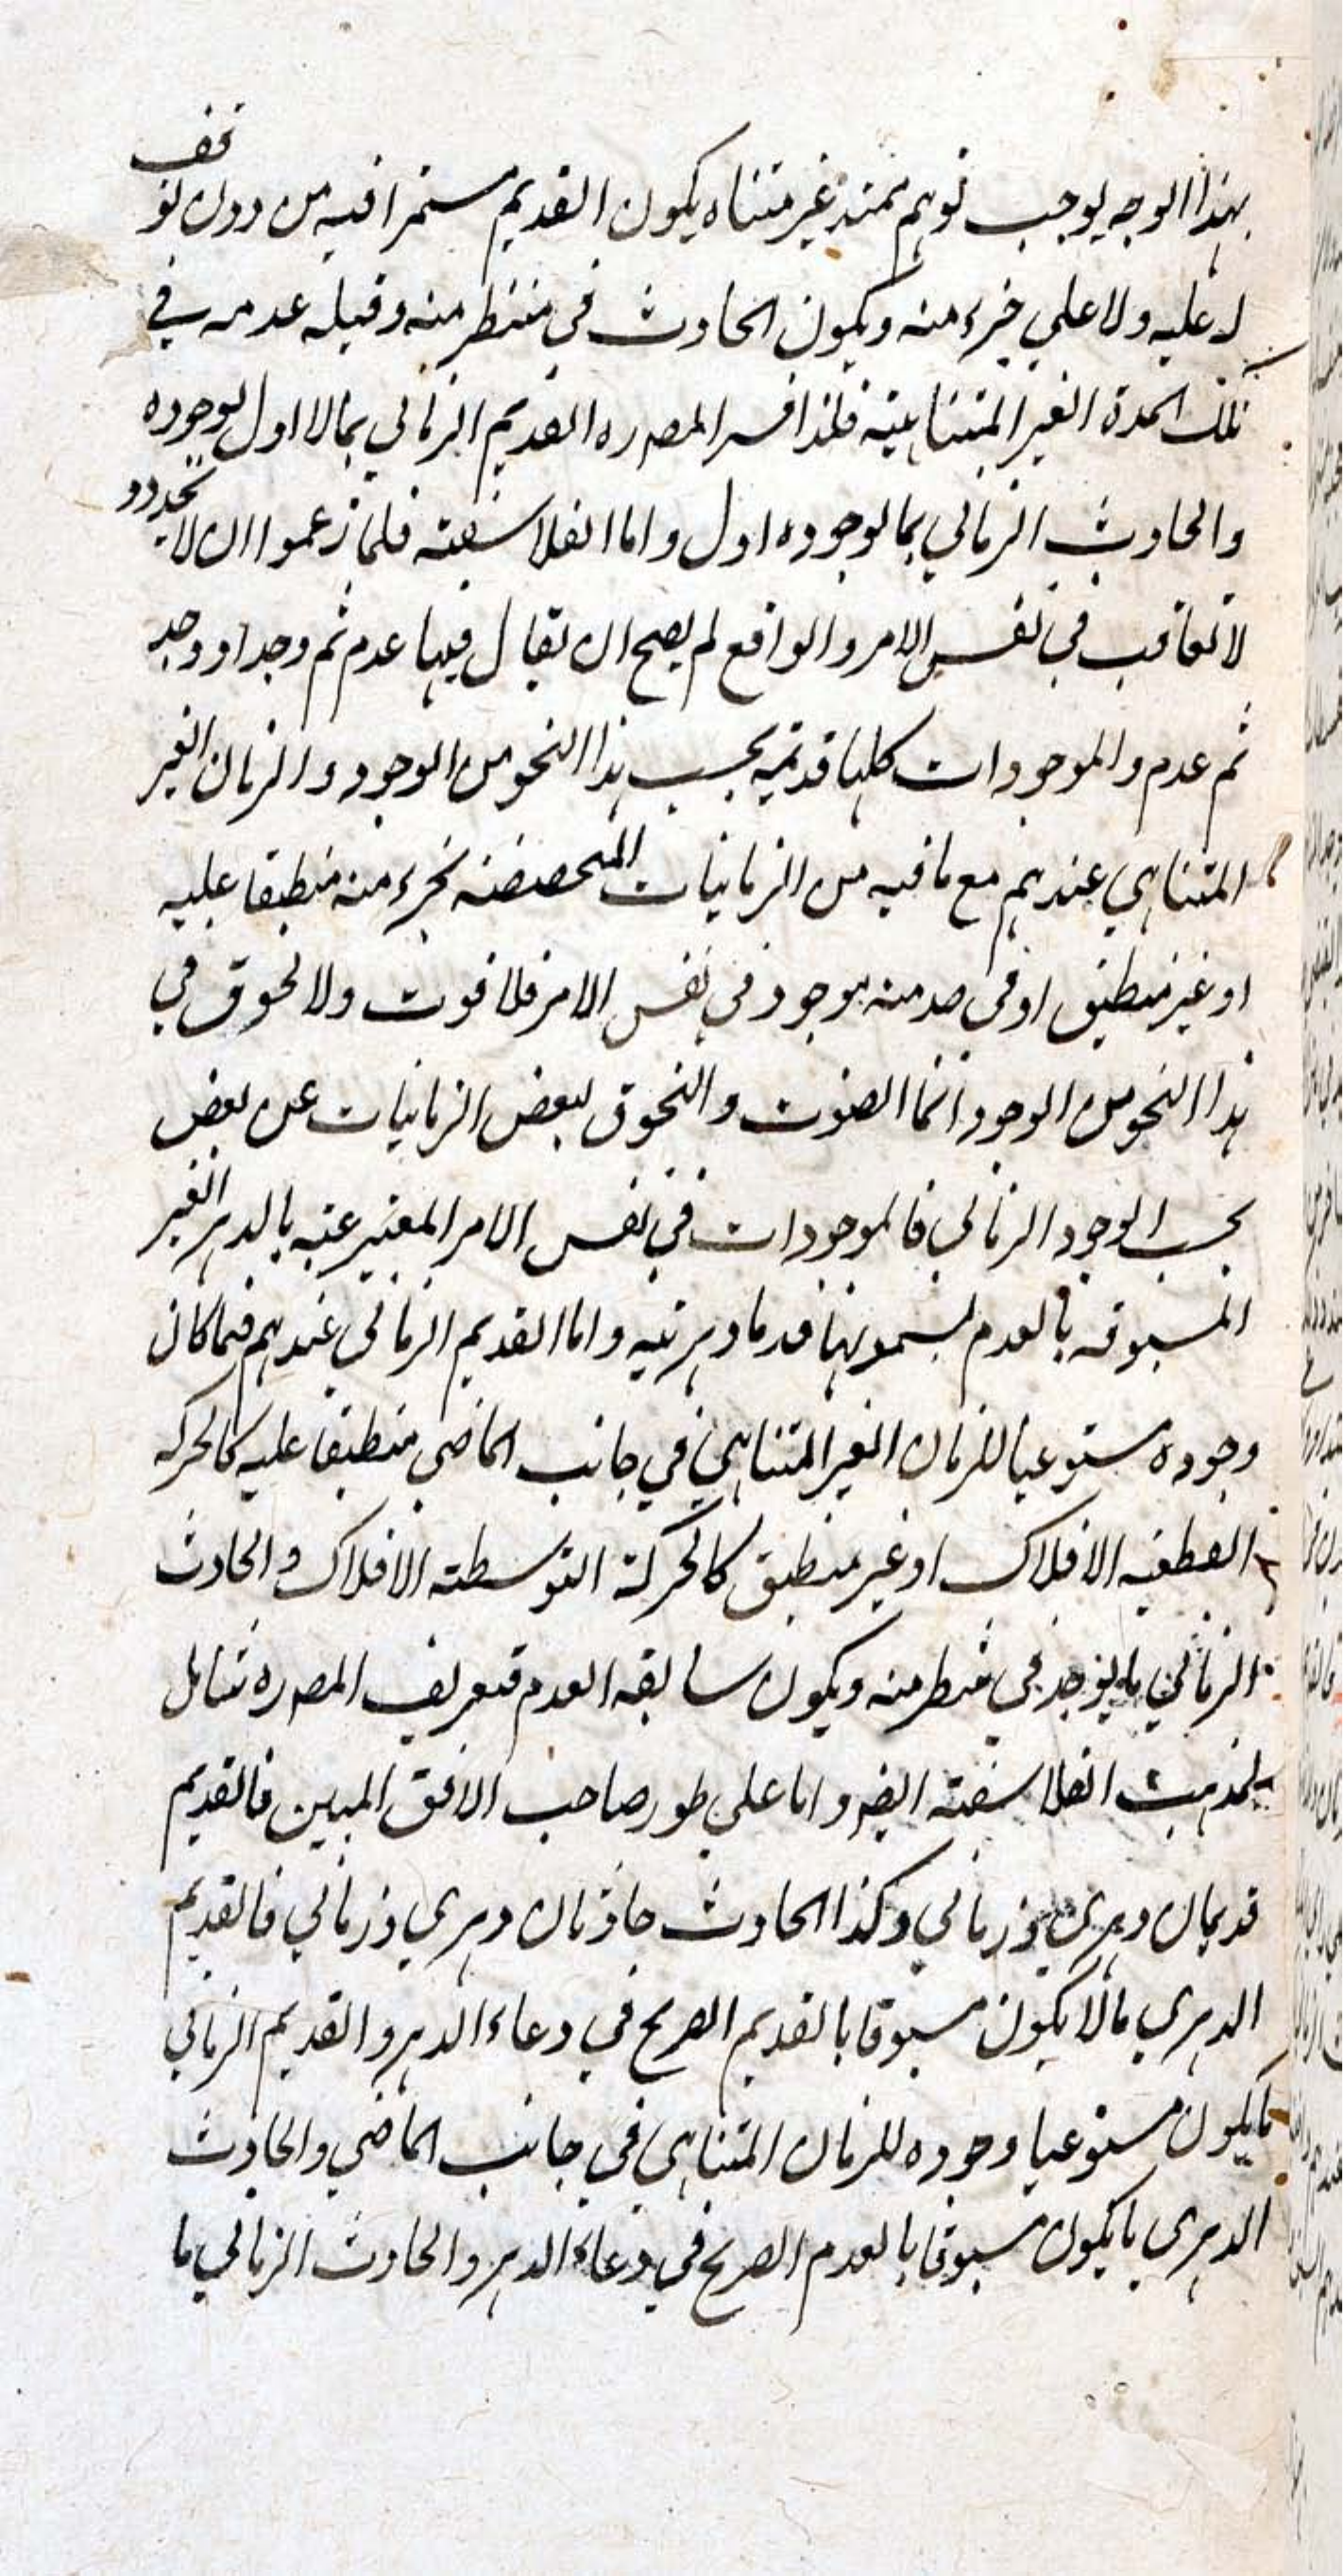 بهذا الوجه يوجب توهم ممتد غير متناه يكون القديم مستمرا فيه من دون توقف
له عليه ولا على جزء منه ويكون الحادث في شطر منه وقبله عدمه في
تلك المدة الغير المتناهية فلذا فسر المصره القديم الزماني بما لا اول لوجوده
والحادث الزماني بما لوجوده اول واما الفلاسفة فلما زعموا ان لا تجدد و
لا تعاقب في نفس الامر والواقع لم يصح ان يقال فيها عدم ثم وجد او وجد
ثم عدم والموجودات كلها قديمة بحسب هذا النحو من الوجود والزمان الغير
المتناهي عندهم مع ما فيه من الزمانيات المتخصصة بجزء منه منطبقا عليه
او غير منطبق او في حد منه موجود في نفس الامر فلا فوت ولا لحوق في
هذا النحو من الوجود انما الفوت واللحوق لبعض الزمانيات عن بعض
بحسب الوجود الزماني فالموجودات في نفس الامر المعبر عنه بالدهر الغير
المسبوقة بالعدم يسمونها قدما دهرية واما القديم الزماني عندهم فما كان
وجوده مستوعبا للزمان الغير المتناهي في جانب الماضي منطبقا عليه كالحركة
القطعية الافلاك او غير منطبق كالحركة التوسطته الافلاك والحادث
الزماني ما يوجد في شطر منه ويكون سابقه العدم فتعريف المصره شامل
لمذهب الفلاسفة ايضر واما على طور صاحب الافق المبين فالقديم
قديمان دهري وزماني وكذا الحادث حادثان دهري وزماني فالقديم
الدهري ما لا يكون مسبوقا بالقديم الصريح في وعاء الدهر والقديم الزماني
ما يكون مستوعبا وجوده للزمان المتناهي في جانب الماضي والحادث
الدهري ما يكون مسبوقا بالعدم الصريح في وعاء الدهر والحادث الزماني ما